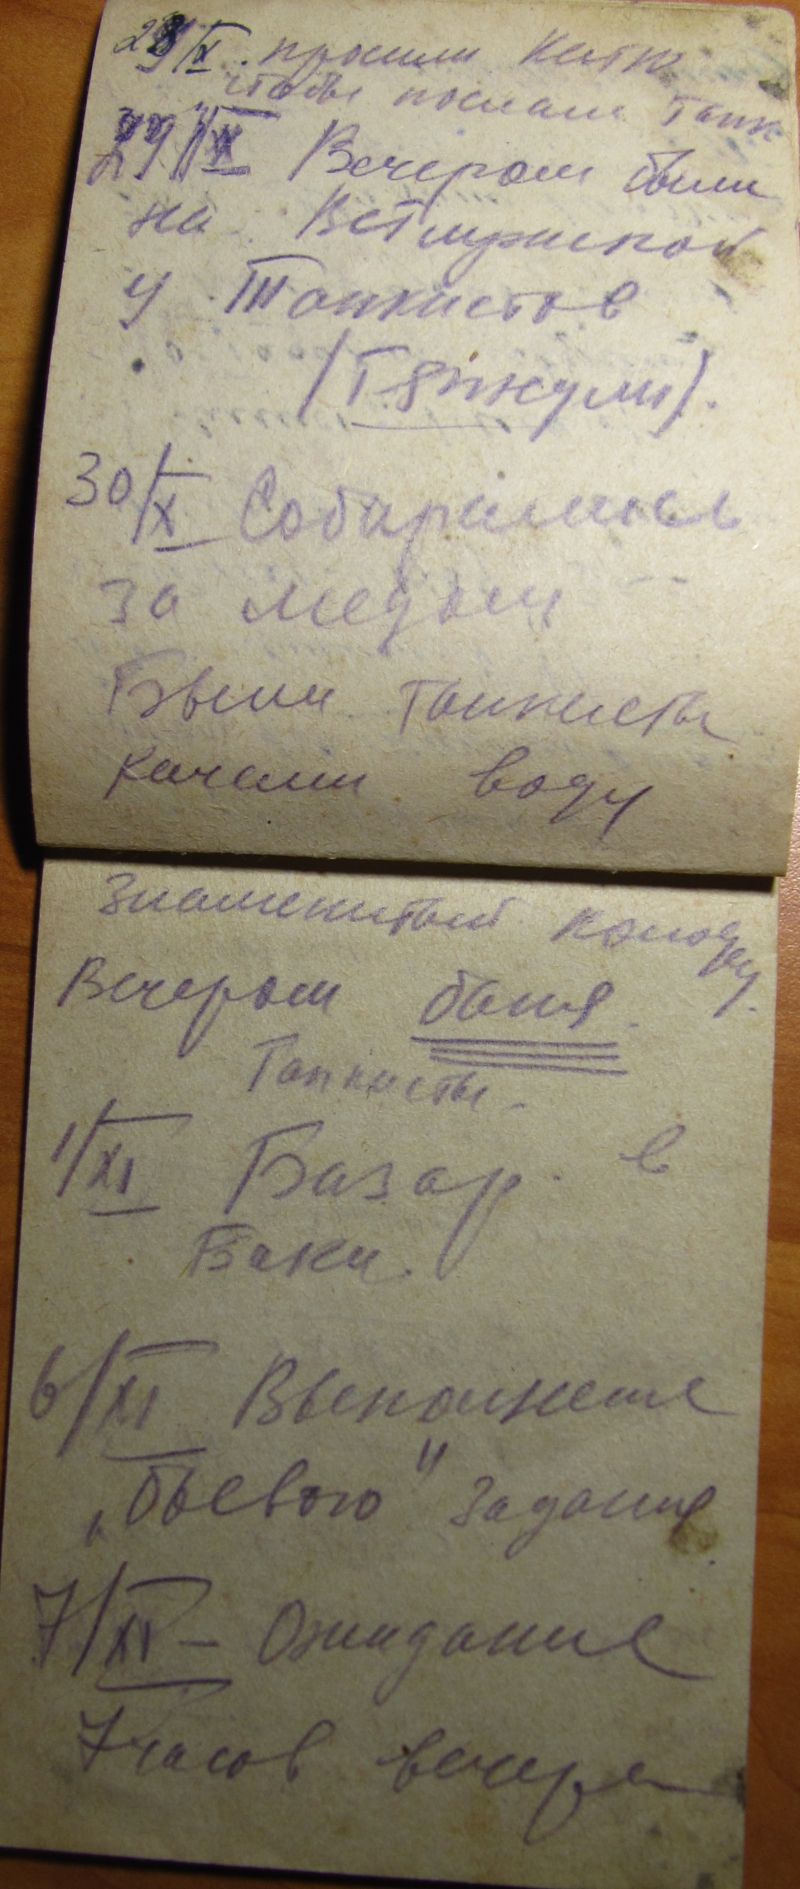 28/X просили Катю
чтобы послали танк
29/X Вечером были
на Ветлужской
у Танкистов
(Тянкули).
30/X Собирались
за медом
Были танкисты
качали воду
Знаменитый колодец.
Вечером баня.
Танкисты.
1/XI Базар в
Баки.
6/XI Выполнение
„боевого" задания
7/XI – Ожидание
7 часов вечера